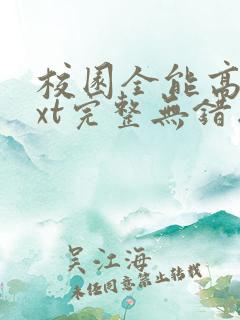 校园全能高
xt完整無错
吴江海
未经同意禁止转载